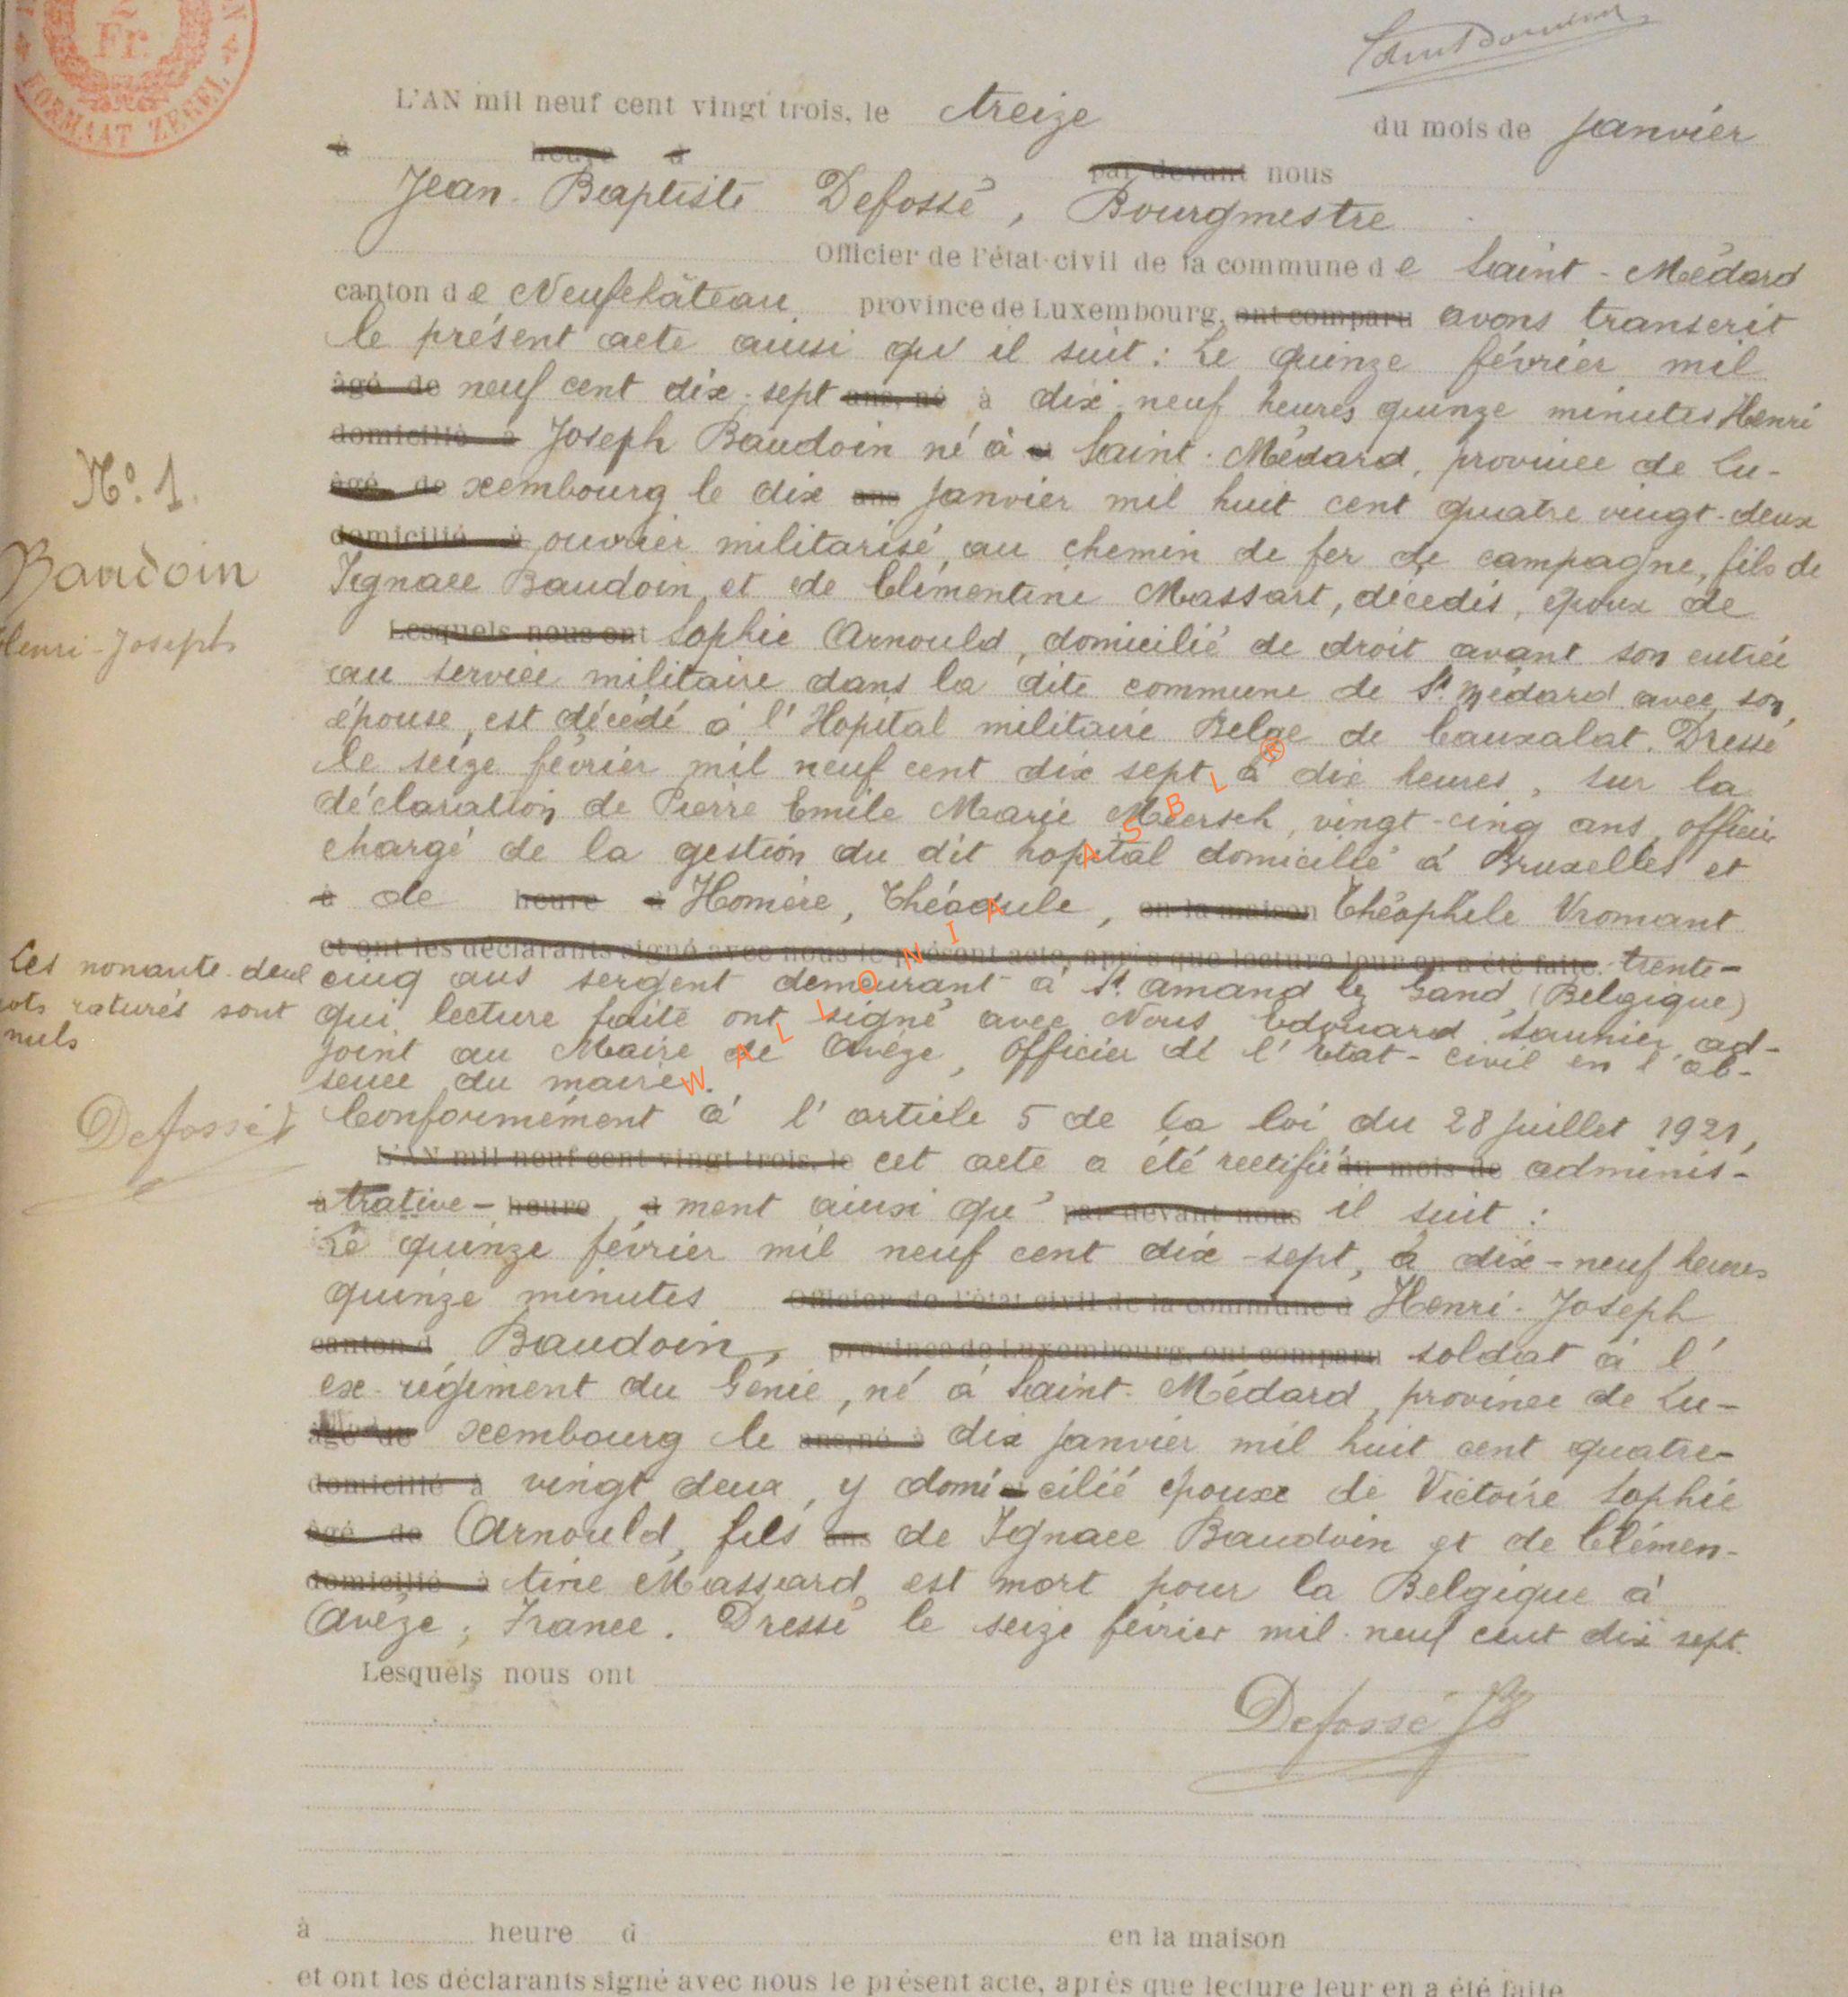 Fr.
FORMAAT ZEGEL
L'AN mil neuf cent vingt trois, le treize du mois de janvier
à heure d par devant nous
Jean-Baptiste Defossé, Bourgmestre
Officier de l'état-civil de la commune de Saint-Médard
canton de Neufchâteau province de Luxembourg, ont comparu avons transcrit
le présent acte ainsi qu'il suit : Le quinze février mil
âgé de neuf cent dix-sept ans, né à dix-neuf heures quinze minutes Henri
domicilié à Joseph Baudoin né à Saint-Médard, province de Lu-
âgé de xembourg le dix ans janvier mil huit cent quatre vingt-deux
domicilié à ouvrier militarisé au chemin de fer de campagne, fils de
Ignace Baudoin et de Clémentine Massart, décédés, époux de
Lesquels nous ont Sophie Arnould, domicilié de droit avant son entrée
au service militaire dans la dite commune de St Médard avec son
épouse, est décédé à l'Hopital militaire Belge de Cauxalat. Dressé
le seize février mil neuf cent dix sept à dix heures, sur la
déclaration de Pierre Emile Marie Meersch, vingt-cinq ans, officier
chargé de la gestion du dit hopital domicilié à Bruxelles et
à de heure d Homère, Théodule, en la maison Théophile Vromant
et ont les déclarants signé avec nous le présent acte, après que lecture leur en a été faite. trente-
cinq ans sergent demeurant à St. Amand lz Gand, (Belgique)
qui lecture faite ont signé avec Nous Edouard Saunier ad-
joint au Maire de Avèze, Officier de l'Etat-civil en l'ab-
sence du maire.
Conformément à l'article 5 de la loi du 28 juillet 1921,
L'AN mil neuf cent vingt trois, le cet acte a été rectifié du mois de adminis-
à trative- heure d ment ainsi qu' par devant nous il suit :
Le quinze février mil neuf cent dix-sept, à dix-neuf heures
quinze minutes Officier de l'état civil de la commune d Henri-Joseph
canton d Baudoin, province de Luxembourg, ont comparu soldat à l'
ex-régiment du Génie, né à Saint-Médard, province de Lu-
âgé de xembourg le ans, né à dix janvier mil huit cent quatre-
domicilié à vingt deux, y domicilié époux de Victoire Sophie
âgé de Arnould, fils ans de Ignace Baudoin et de Clémen-
domicilié à tine Massard, est mort pour la Belgique à
Avèze, France. Dressé le seize février mil neuf cent dix sept.
Lesquels nous ont
Defossé JB
à heure d en la maison
et ont les déclarants signé avec nous le présent acte, après que lecture leur en a été faite
No. 1.
Baudoin
Henri-Joseph
Les nonante-deux
mots raturés sont
nuls
Defossé
WALLONIA ASBL ®